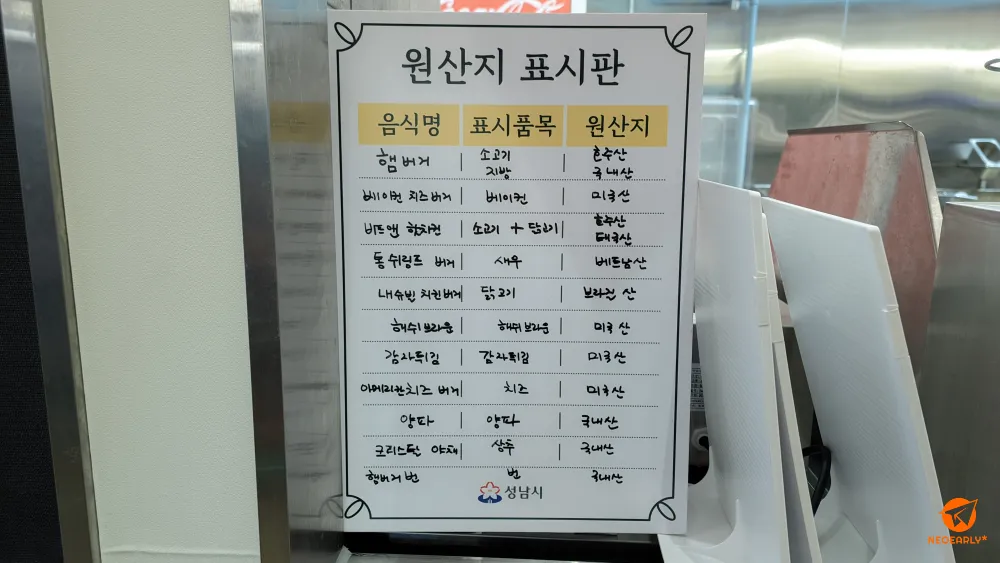 원산지 표시판
음식명 표시품목 원산지
햄버거 소고기 호주산
지방 국내산
베이컨 치즈버거 베이컨 미국산
비프앤 핫치킨 소고기 + 닭고기 호주산
태국산
통 쉬림프 버거 새우 베트남산
내슈빌 치킨버거 닭고기 브라질 산
해쉬브라운 해쉬브라운 미국 산
감자튀김 감자튀김 미국산
아메리칸치즈 버거 치즈 미국산
양파 양파 국내산
크리스탈 야채 상추 국내산
햄버거 번 번 국내산
성남시
NEOEARLY*